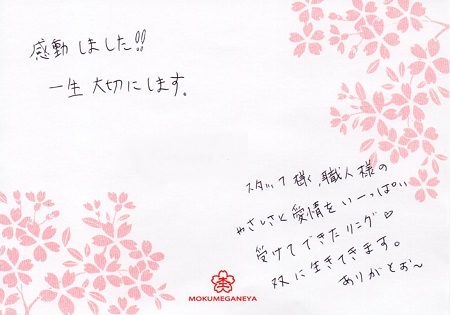 感動しました!!
一生大切にします。
スタッフ様、職人様の
やさしさと愛情をいーっぱい
受けてできたリング♡
双に生きてきます。
ありがとお〜
MOKUMEGANEYA